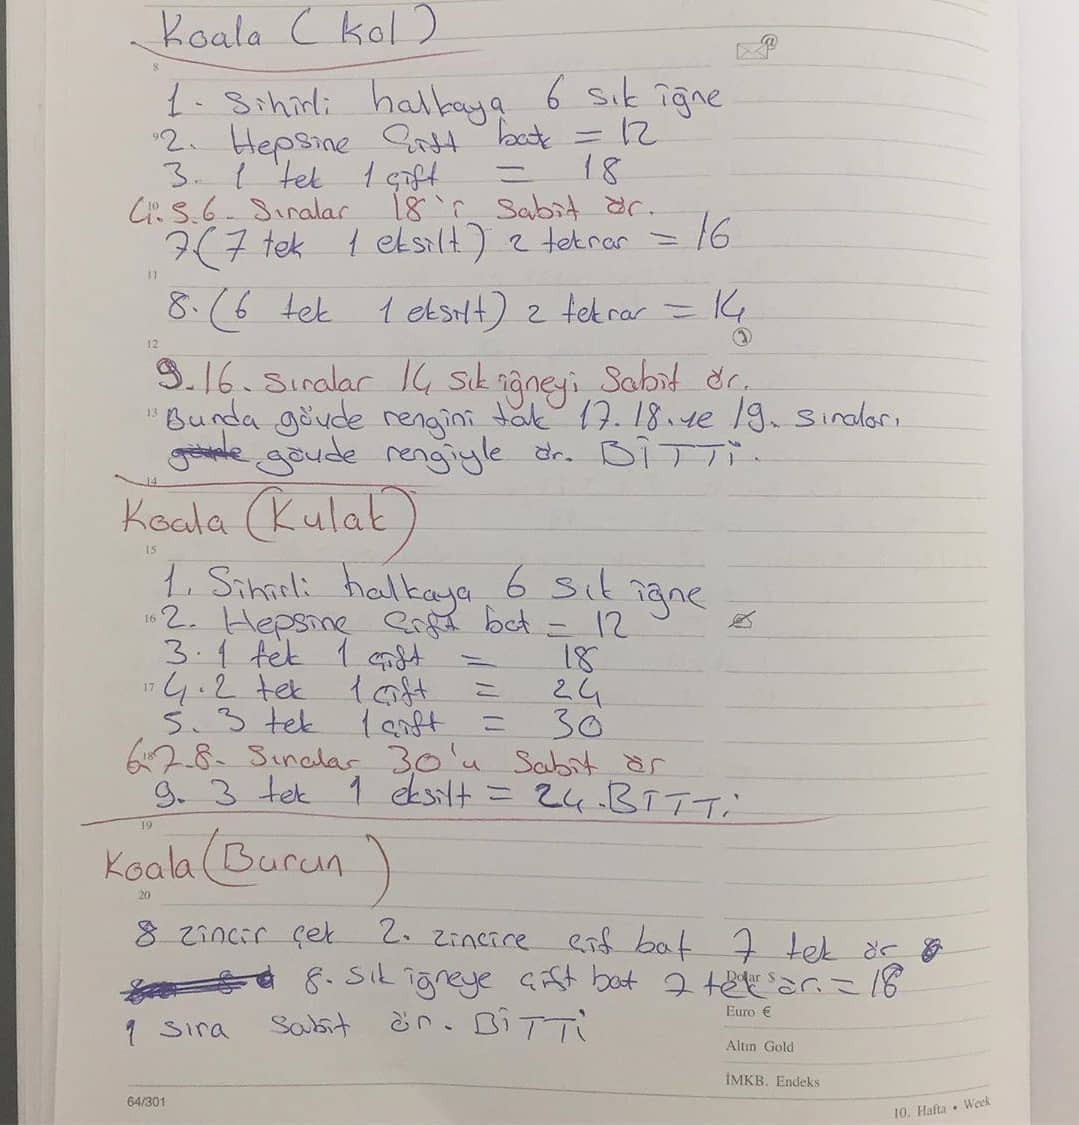 Koala (Kol)
8
1. Sihirli halkaya 6 sık iğne
9
2. Hepsine Çift bat = 12
3. 1 tek 1 çift = 18
10
4.5.6. Sıralar 18'i Sabit ör.
7(7 tek 1 eksilt) 2 tekrar = 16
11
8. (6 tek 1 eksilt) 2 tekrar = 14
12
9.16. Sıralar 14 sık iğneyi Sabit ör.
13
Bunda gövde rengini tak 17.18.ve 19. sıraları
gövde rengiyle ör. BİTTİ.
14
Koala (Kulak)
15
1. Sihirli halkaya 6 sık iğne
16
2. Hepsine Çift bat = 12
3. 1 tek 1 çift = 18
17
4. 2 tek 1 çift = 24
5. 3 tek 1 çift = 30
18
6.7.8. Sıralar 30'u Sabit ör
9. 3 tek 1 eksilt = 24. BİTTİ
19
Koala (Burun)
20
8 zincir çek 2. zincire çif bat 7 tek ör
8. sık iğneye çift bat 7 tek ör. = 18
Dolar $
1 sıra Sabit ör. BİTTİ
Euro €
Altın Gold
İMKB. Endeks
64/301
10. Hafta • Week